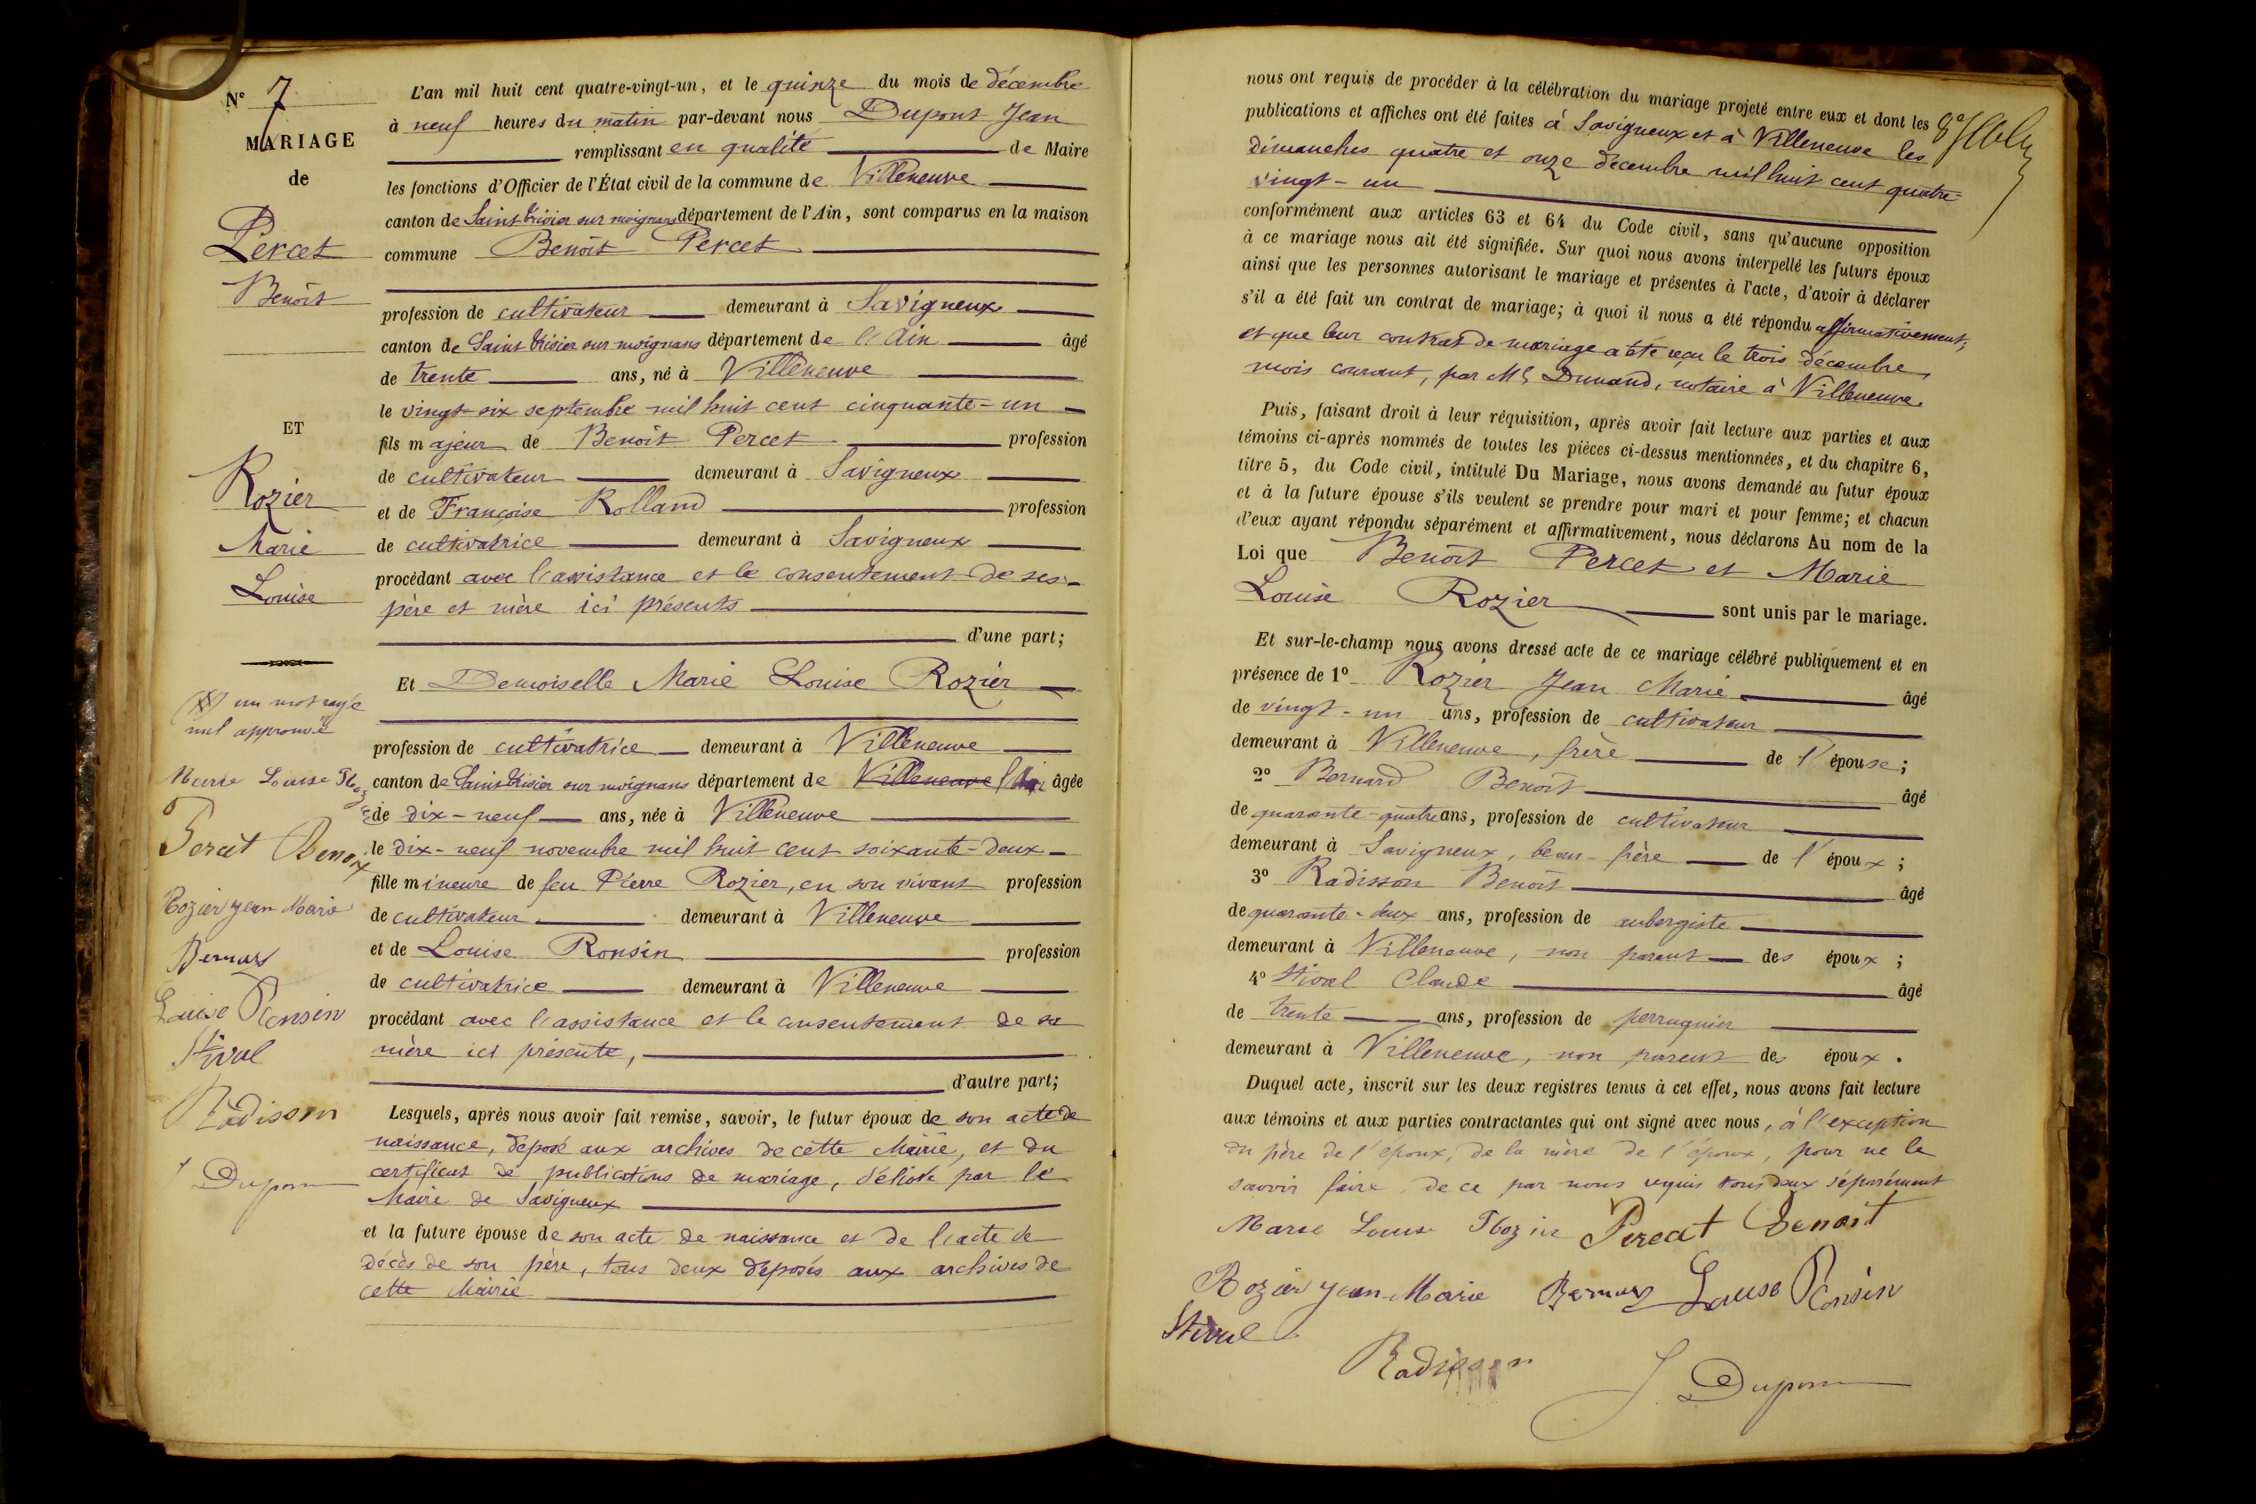 N° 7
MARIAGE
de
Percet
Benoît
ET
Rozier
Marie
Louise
(X) un mot rayé
nul approuvé
Marie Louise Rozier
Percet Benoit
Rozier Jean Marie
Bernard
Louise Ronsin
Stival
Radisson
J Dupont
L'an mil huit cent quatre-vingt-un, et le quinze du mois de décembre
à neuf heures du matin par-devant nous Dupont Jean
remplissant en qualité de Maire
les fonctions d'Officier de l'État civil de la commune de Villeneuve
canton de Saint Trivier sur moignans département de l'Ain, sont comparus en la maison
commune Benoît Percet
profession de cultivateur demeurant à Savigneux
canton de Saint Trivier sur moignans département de l'Ain âgé
de trente ans, né à Villeneuve
le vingt-six septembre mil huit cent cinquante-un
fils majeur de Benoît Percet profession
de cultivateur demeurant à Savigneux
et de Françoise Rolland profession
de cultivatrice demeurant à Savigneux
procédant avec l'assistance et le consentement de ses
père et mère ici présents
d'une part;
Et Demoiselle Marie Louise Rozier
profession de cultivatrice demeurant à Villeneuve
canton de Saint Trivier sur moignans département de Villeneuve l'Ain âgée
de dix-neuf ans, née à Villeneuve
le dix-neuf novembre mil huit cent soixante-deux
fille mineure de feu Pierre Rozier, en son vivant profession
de cultivateur demeurant à Villeneuve
et de Louise Ronsin profession
de cultivatrice demeurant à Villeneuve
procédant avec l'assistance et le consentement de sa
mère ici présente,
d'autre part;
Lesquels, après nous avoir fait remise, savoir, le futur époux de son acte de
naissance, déposé aux archives de cette Mairie, et du
certificat de publications de mariage, délivré par le
Maire de Savigneux
et la future épouse de son acte de naissance et de l'acte de
décès de son père, tous deux déposés aux archives de
cette Mairie
nous ont requis de procéder à la célébration du mariage projeté entre eux et dont les
publications et affiches ont été faites à Savigneux et à Villeneuve les
dimanches quatre et onze décembre mil huit cent quatre-
vingt-un
conformément aux articles 63 et 64 du Code civil, sans qu'aucune opposition
à ce mariage nous ait été signifiée. Sur quoi nous avons interpellé les futurs époux
ainsi que les personnes autorisant le mariage et présentes à l'acte, d'avoir à déclarer
s'il a été fait un contrat de mariage; à quoi il nous a été répondu affirmativement,
et que leur contrat de mariage a été reçu le trois décembre,
mois courant, par Me Dunand, notaire à Villeneuve.
Puis, faisant droit à leur réquisition, après avoir fait lecture aux parties et aux
témoins ci-après nommés de toutes les pièces ci-dessus mentionnées, et du chapitre 6,
titre 5, du Code civil, intitulé Du Mariage, nous avons demandé au futur époux
et à la future épouse s'ils veulent se prendre pour mari et pour femme; et chacun
d'eux ayant répondu séparément et affirmativement, nous déclarons Au nom de la
Loi que Benoît Percet et Marie
Louise Rozier sont unis par le mariage.
Et sur-le-champ nous avons dressé acte de ce mariage célébré publiquement et en
présence de 1° Rozier Jean Marie âgé
de vingt-un ans, profession de cultivateur
demeurant à Villeneuve, frère de l'épouse;
2° Bernard Benoît âgé
de quarante-quatre ans, profession de cultivateur
demeurant à Savigneux, beau-frère de l'époux;
3° Radisson Benoît âgé
de quarante-deux ans, profession de aubergiste
demeurant à Villeneuve, non parent des époux;
4° Stival Claude âgé
de trente ans, profession de perruquier
demeurant à Villeneuve, non parent des époux.
Duquel acte, inscrit sur les deux registres tenus à cet effet, nous avons fait lecture
aux témoins et aux parties contractantes qui ont signé avec nous, à l'exception
du père de l'époux, de la mère de l'époux, pour ne le
savoir faire, de ce par nous requis tous deux séparément
Marie Louise Rozier Percet Benoit
Rozier Jean Marie Bernard Louise Ronsin
Stival
Radisson
J Dupont